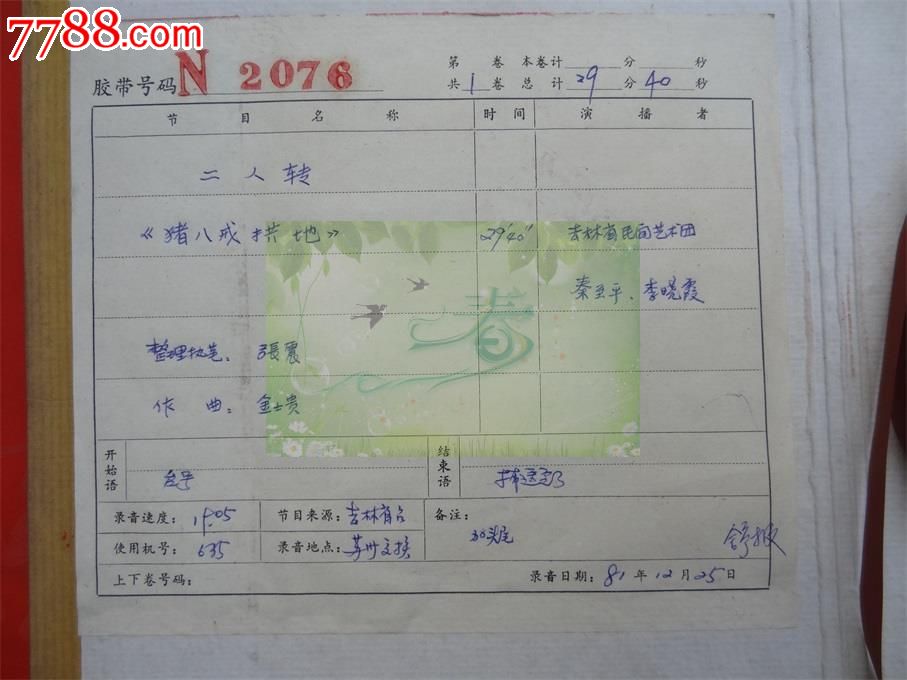 7788.com
第 卷 本卷计 分 秒
胶带号码 N 2076 共1卷 总计29分40秒
节目名称 时间 演播者
二人转
《猪八戒拱地》 29'40" 吉林省民间艺术团
秦至平、李晓霞
整理执笔：張震
作曲：金士贵
春
开始语 台号 结束语
录音速度：19.05 节目来源：吉林省台 备注：
使用机号：635 录音地点：苏州交换
上下卷号码： 录音日期：81年12月25日